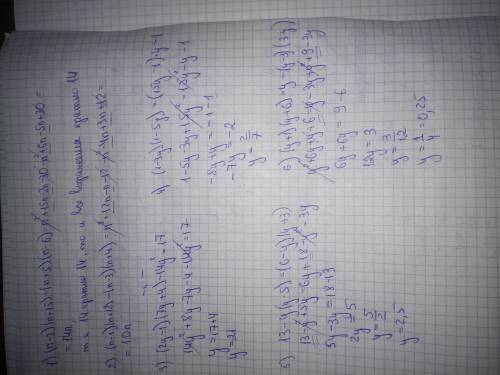 1) (n-2)(n+15)-(n+5)(n-6)=n²+15n-2n-30-n²+6n-5n+30=
=14n
т.к 14 кратно 14, то и все выражение кратно 14
2) (n-1)(n+12)-(n-3)(n+4)=n²+12n-n-12-n²-4n+3n+12=
=10n
3) (2y-1)(7y+4)-14y²=17
14y²+8y-7y-4-14y²=17
y=17+4
y=21
4) (1-3y)(1-5y)=(15y-1)·y-1
1-5y-3y+15y²=15y²-y-1
-8y+y=-1-1
-7y=-2
y=2/7
5) 13-y(y-5)=(6-y)(y+3)
13-y²+5y=6y+18-y²-3y
5y-3y=18-13
2y=5
y=5/2
y=2,5
6)
6y+6y=9-6
12y=3
y=3/12
y=1/4=0,25